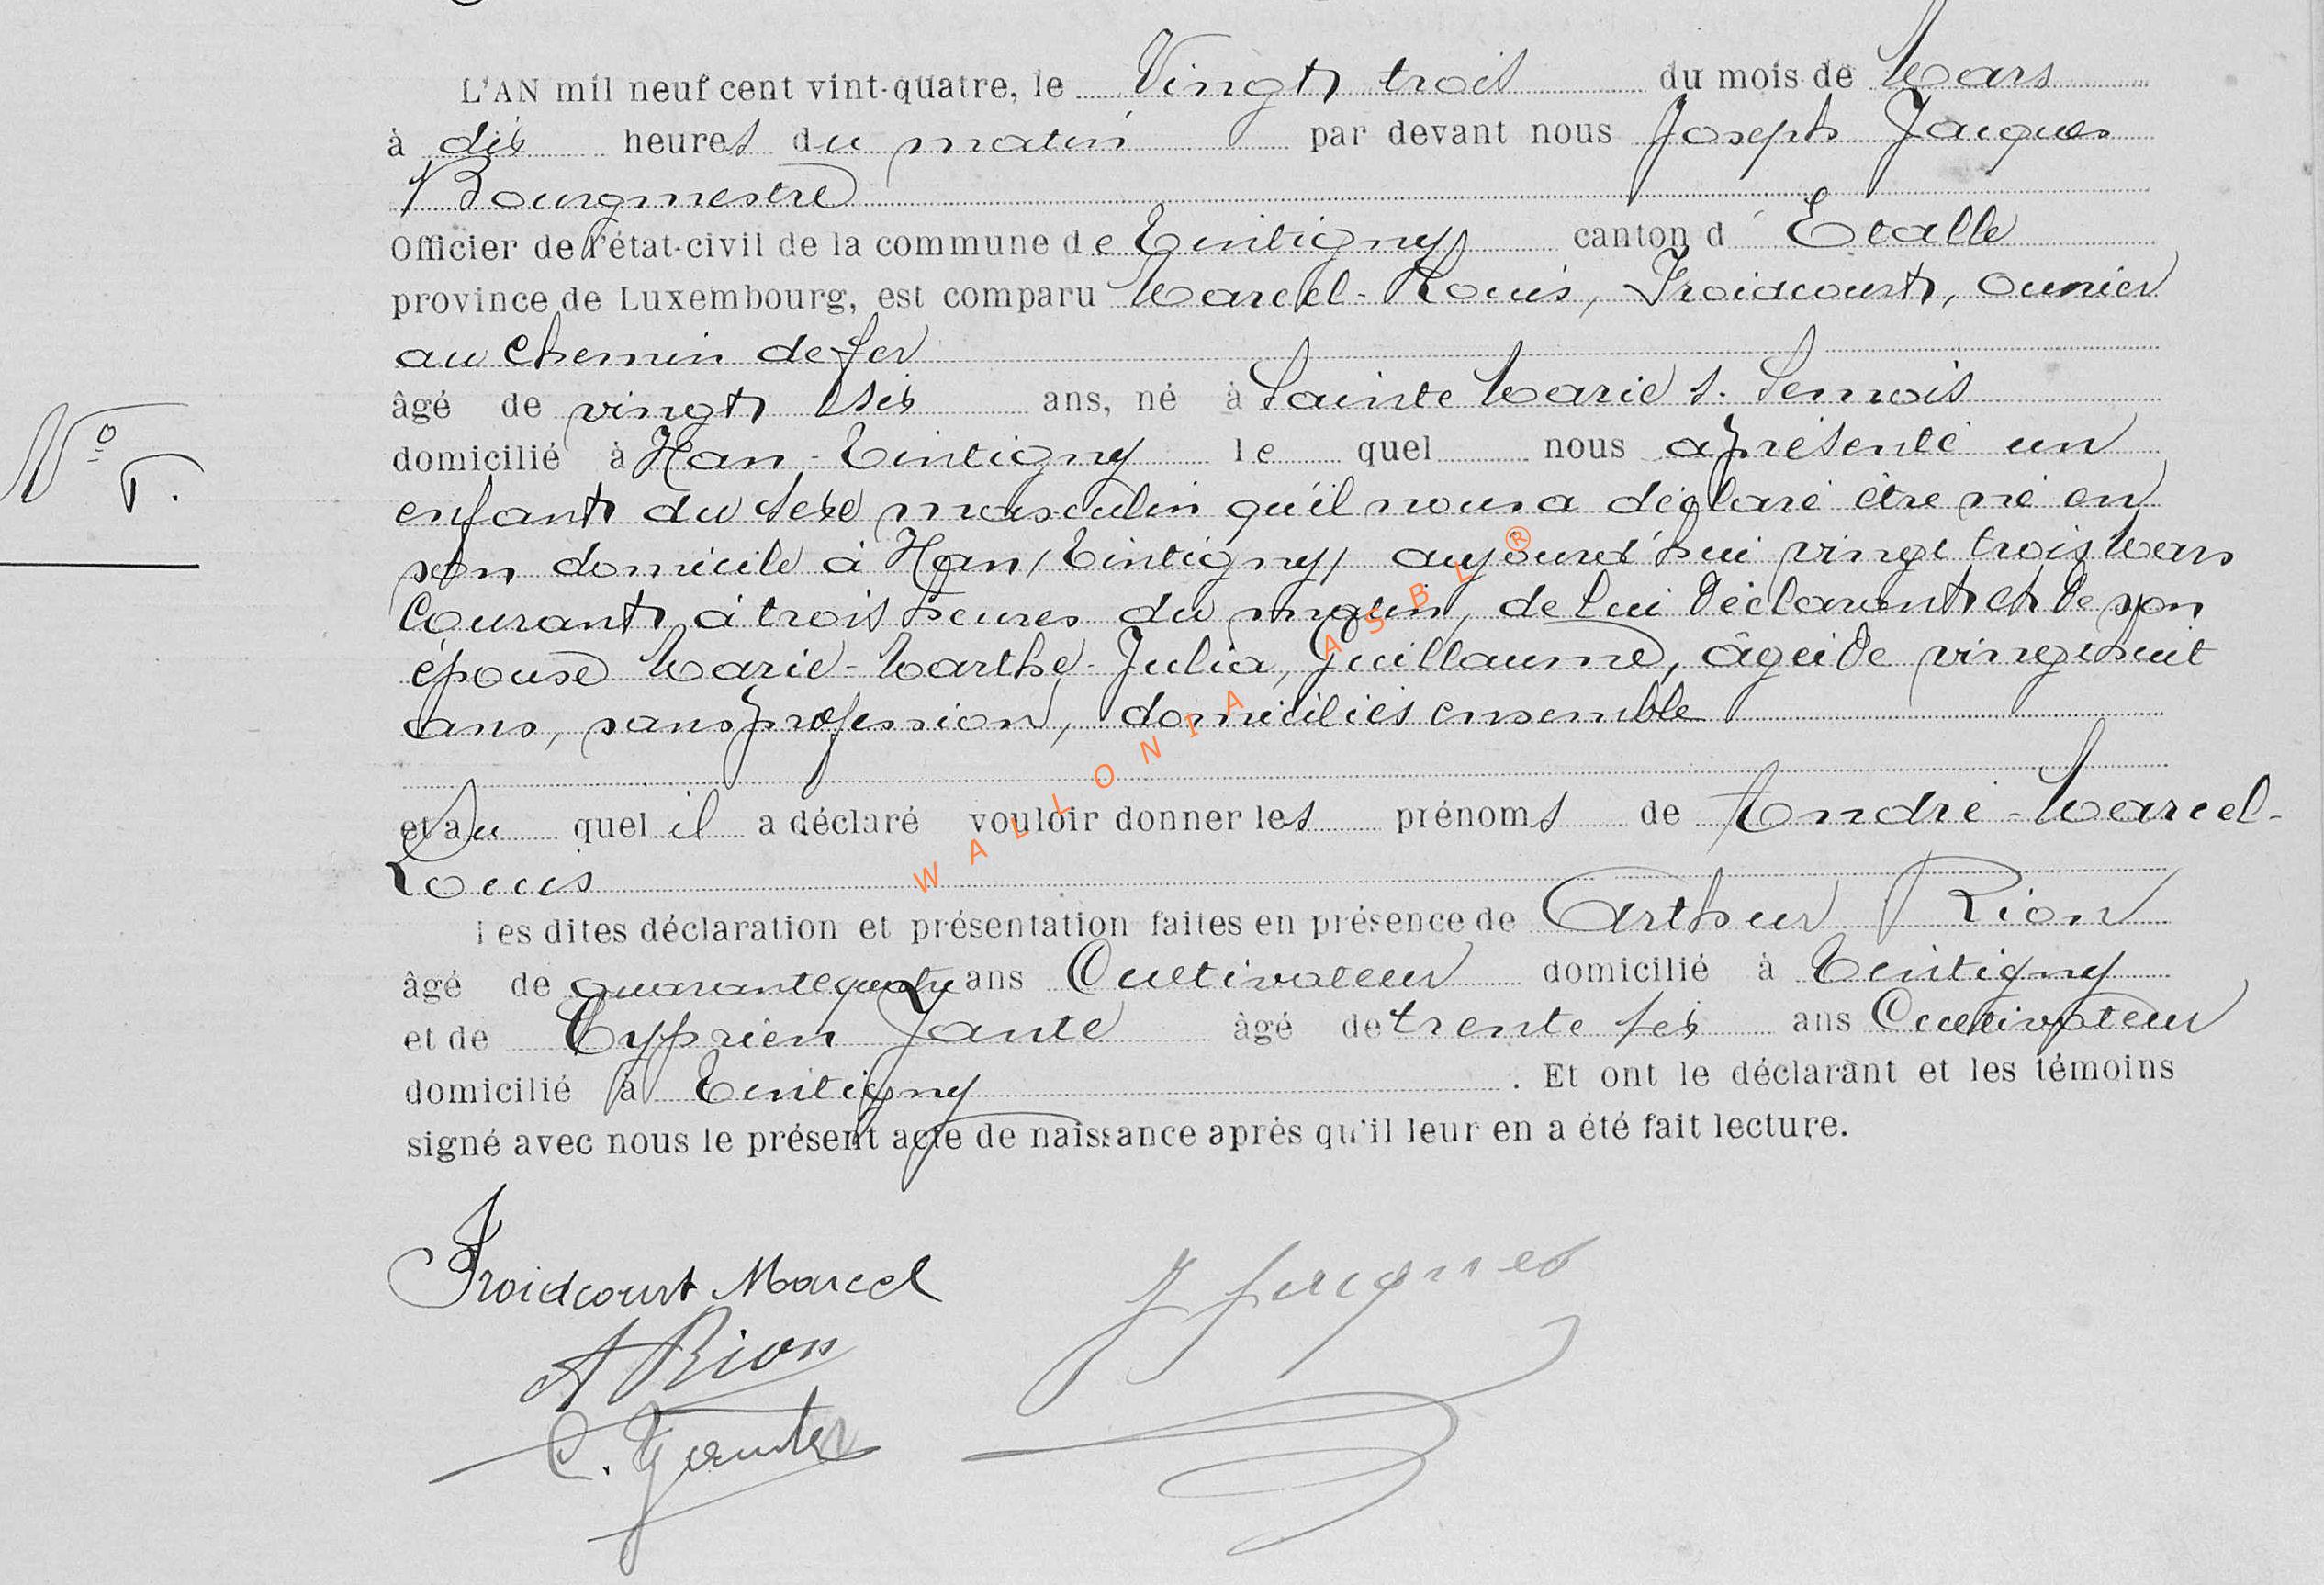 L'AN mil neuf cent vint-quatre, le Vingt trois du mois de Mars
à dix heures du matin par devant nous Joseph Jacques
Bourgmestre
Officier de l'état-civil de la commune de Tintigny canton d'Etalle
province de Luxembourg, est comparu Marcel-Louis, Froidcourt, ouvrier
au chemin de fer
âgé de vingt six ans, né à Sainte Marie s. Semois
domicilié à Han-Tintigny lequel nous a présenté un
N° 5.
enfant du sexe masculin qu'il nous a déclaré être né en
son domicile à Han/Tintigny/ aujourd'hui vingt trois Mars
Courant à trois heures du matin, de lui déclarant et de son
épouse Marie-Marthe-Julia, Guillaume, âgée de vingt huit
ans, sans profession, domiciliés ensemble
et au quel il a déclaré vouloir donner les prénoms de André-Marcel-
Louis
Les dites déclaration et présentation faites en présence de Arthur Rion
âgé de quarante quatre ans Cultivateur domicilié à Tintigny
et de Cyprien Jante âgé de trente six ans Cultivateur
domicilié à Tintigny . Et ont le déclarant et les témoins
signé avec nous le présent acte de naissance après qu'il leur en a été fait lecture.
Froidcourt Marcel
J Jacques
A Rion
C.
WALLONIA ASBL ®